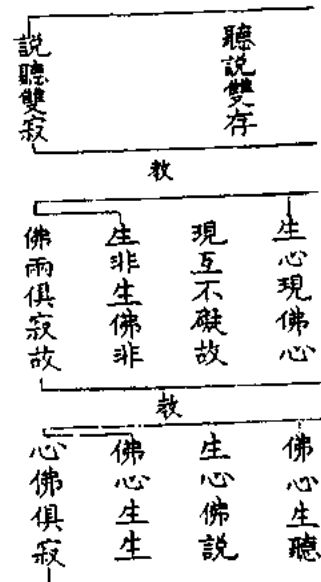 聽説雙存
説聽雙寂
教
生心現佛心
現互不礙故
生非生佛非
佛兩俱寂故
教
佛心生聽
生心佛説
佛心生生
心佛俱寂